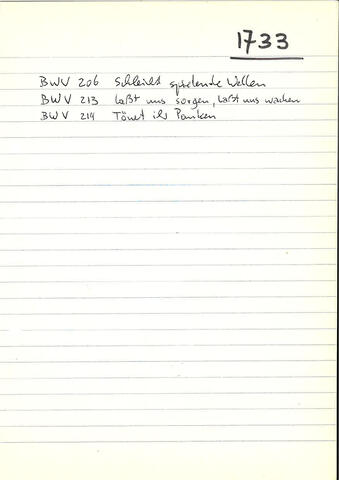 1733
BWV 206 Schleicht spielende Wellen
BWV 213 Laßt uns sorgen, Laßt uns wachen
BWV 214 Tönet ihr Pauken